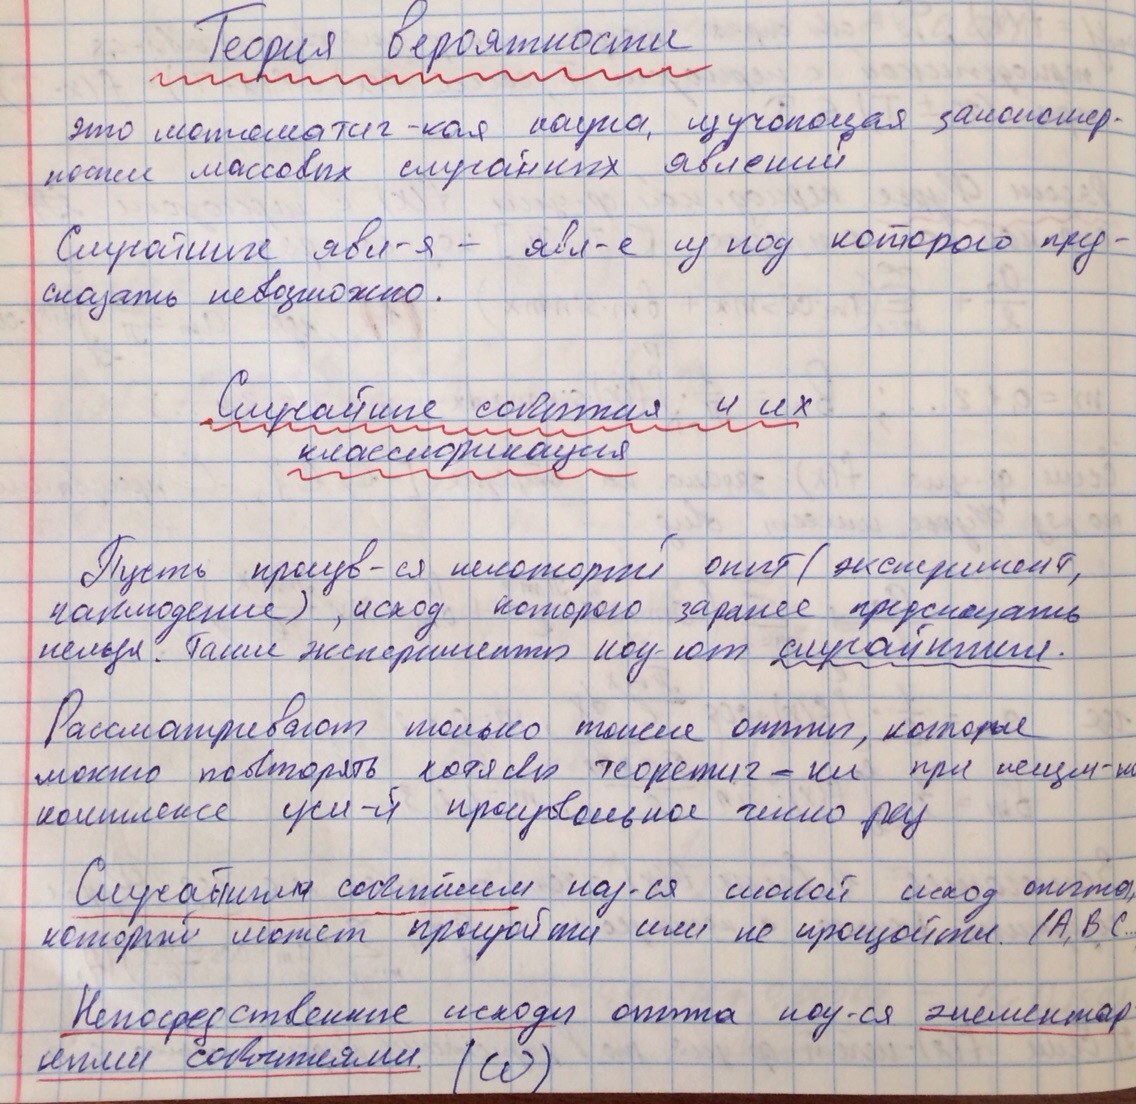 Теория вероятности
это математич-кая наука, изучающая закономер-
ности массовых случайных явлений
Случайные явл-я - явл-е исход которого пред-
сказать невозможно.
Случайные события и их
классификация
Пусть произв-ся некоторый опыт (эксперимент,
наблюдение), исход которого заранее предсказать
нельзя. Такие эксперименты наз-ют случайными.
Рассматривают только такие опыты, которые
можно повторять хотябы теоретич-ки при неизм-м
комплексе усл-й произвольное число раз
Случайным событием наз-ся любой исход опыта,
который может произойти или не произойти. (A, B C...
Непосредственные исходы опыта наз-ся элементар
ными событиями. (ω)